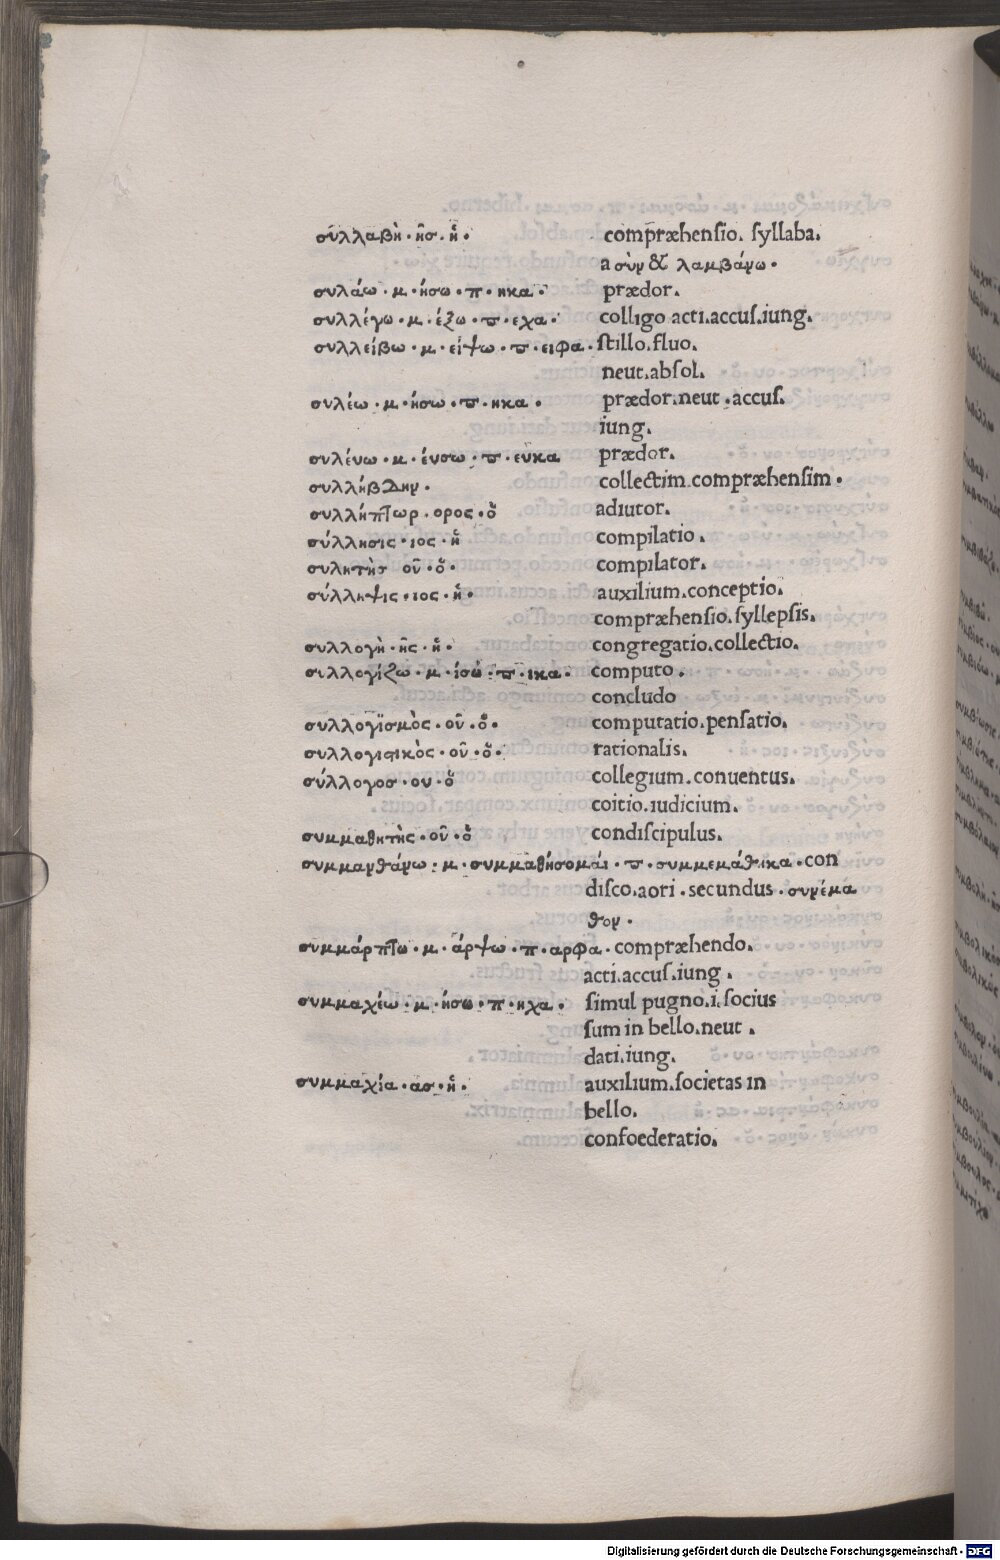 συλλαβὴ · ῆσ · ἡ · compræhensio. syllaba.
a σὺν & λαμβάνω ·
συλάω · μ · ήσω · π · ηκα · prædor.
συλλέγω · μ · έξω · π · εχα · colligo acti.accus.iung.
συλλείβω · μ · είψω · π · ειφα · stillo.fluo.
neut.absol.
συλέω · μ · ήσω · π · ηκα · prædor.neut.accus.
iung.
συλένω · μ · ένσω · π · ευκα prædor.
συλλήβδην · collectim.compræhensim.
συλλήπτωρ · ορος · ὁ adiutor.
σύλλησις · ιος · ἡ compilatio.
συλητὴσ οῦ · ὁ · compilator.
σύλληψις · ιος · ἡ · auxilium.conceptio.
compræhensio.syllepsis.
συλλογὴ · ῆς · ἡ · congregatio.collectio.
συλλογίζω · μ · ίσω · π · ικα · computo.
concludo
συλλογισμὸς · οῦ · ὁ · computatio.pensatio.
συλλογιστικὸς · οῦ · ὁ · rationalis.
σύλλογοσ · ου · ὁ collegium.conuentus.
coitio.iudicium.
συμμαθητὴς · οῦ · ὁ condiscipulus.
συμμανθάνω · μ · συμμαθήσομαι · π · συμμεμάθηκα · con
disco.aori · secundus · συνέμα
θον ·
συμμάρπτω · μ · άρψω · π · αρφα · compræhendo.
acti.accus.iung.
συμμαχέω · μ · ήσω · π · ηχα · simul pugno.i.socius
sum in bello.neut.
dati.iung.
συμμαχία · ασ · ἡ · auxilium.societas in
bello.
confoederatio.
Digitalisierung gefördert durch die Deutsche Forschungsgemeinschaft - DFG